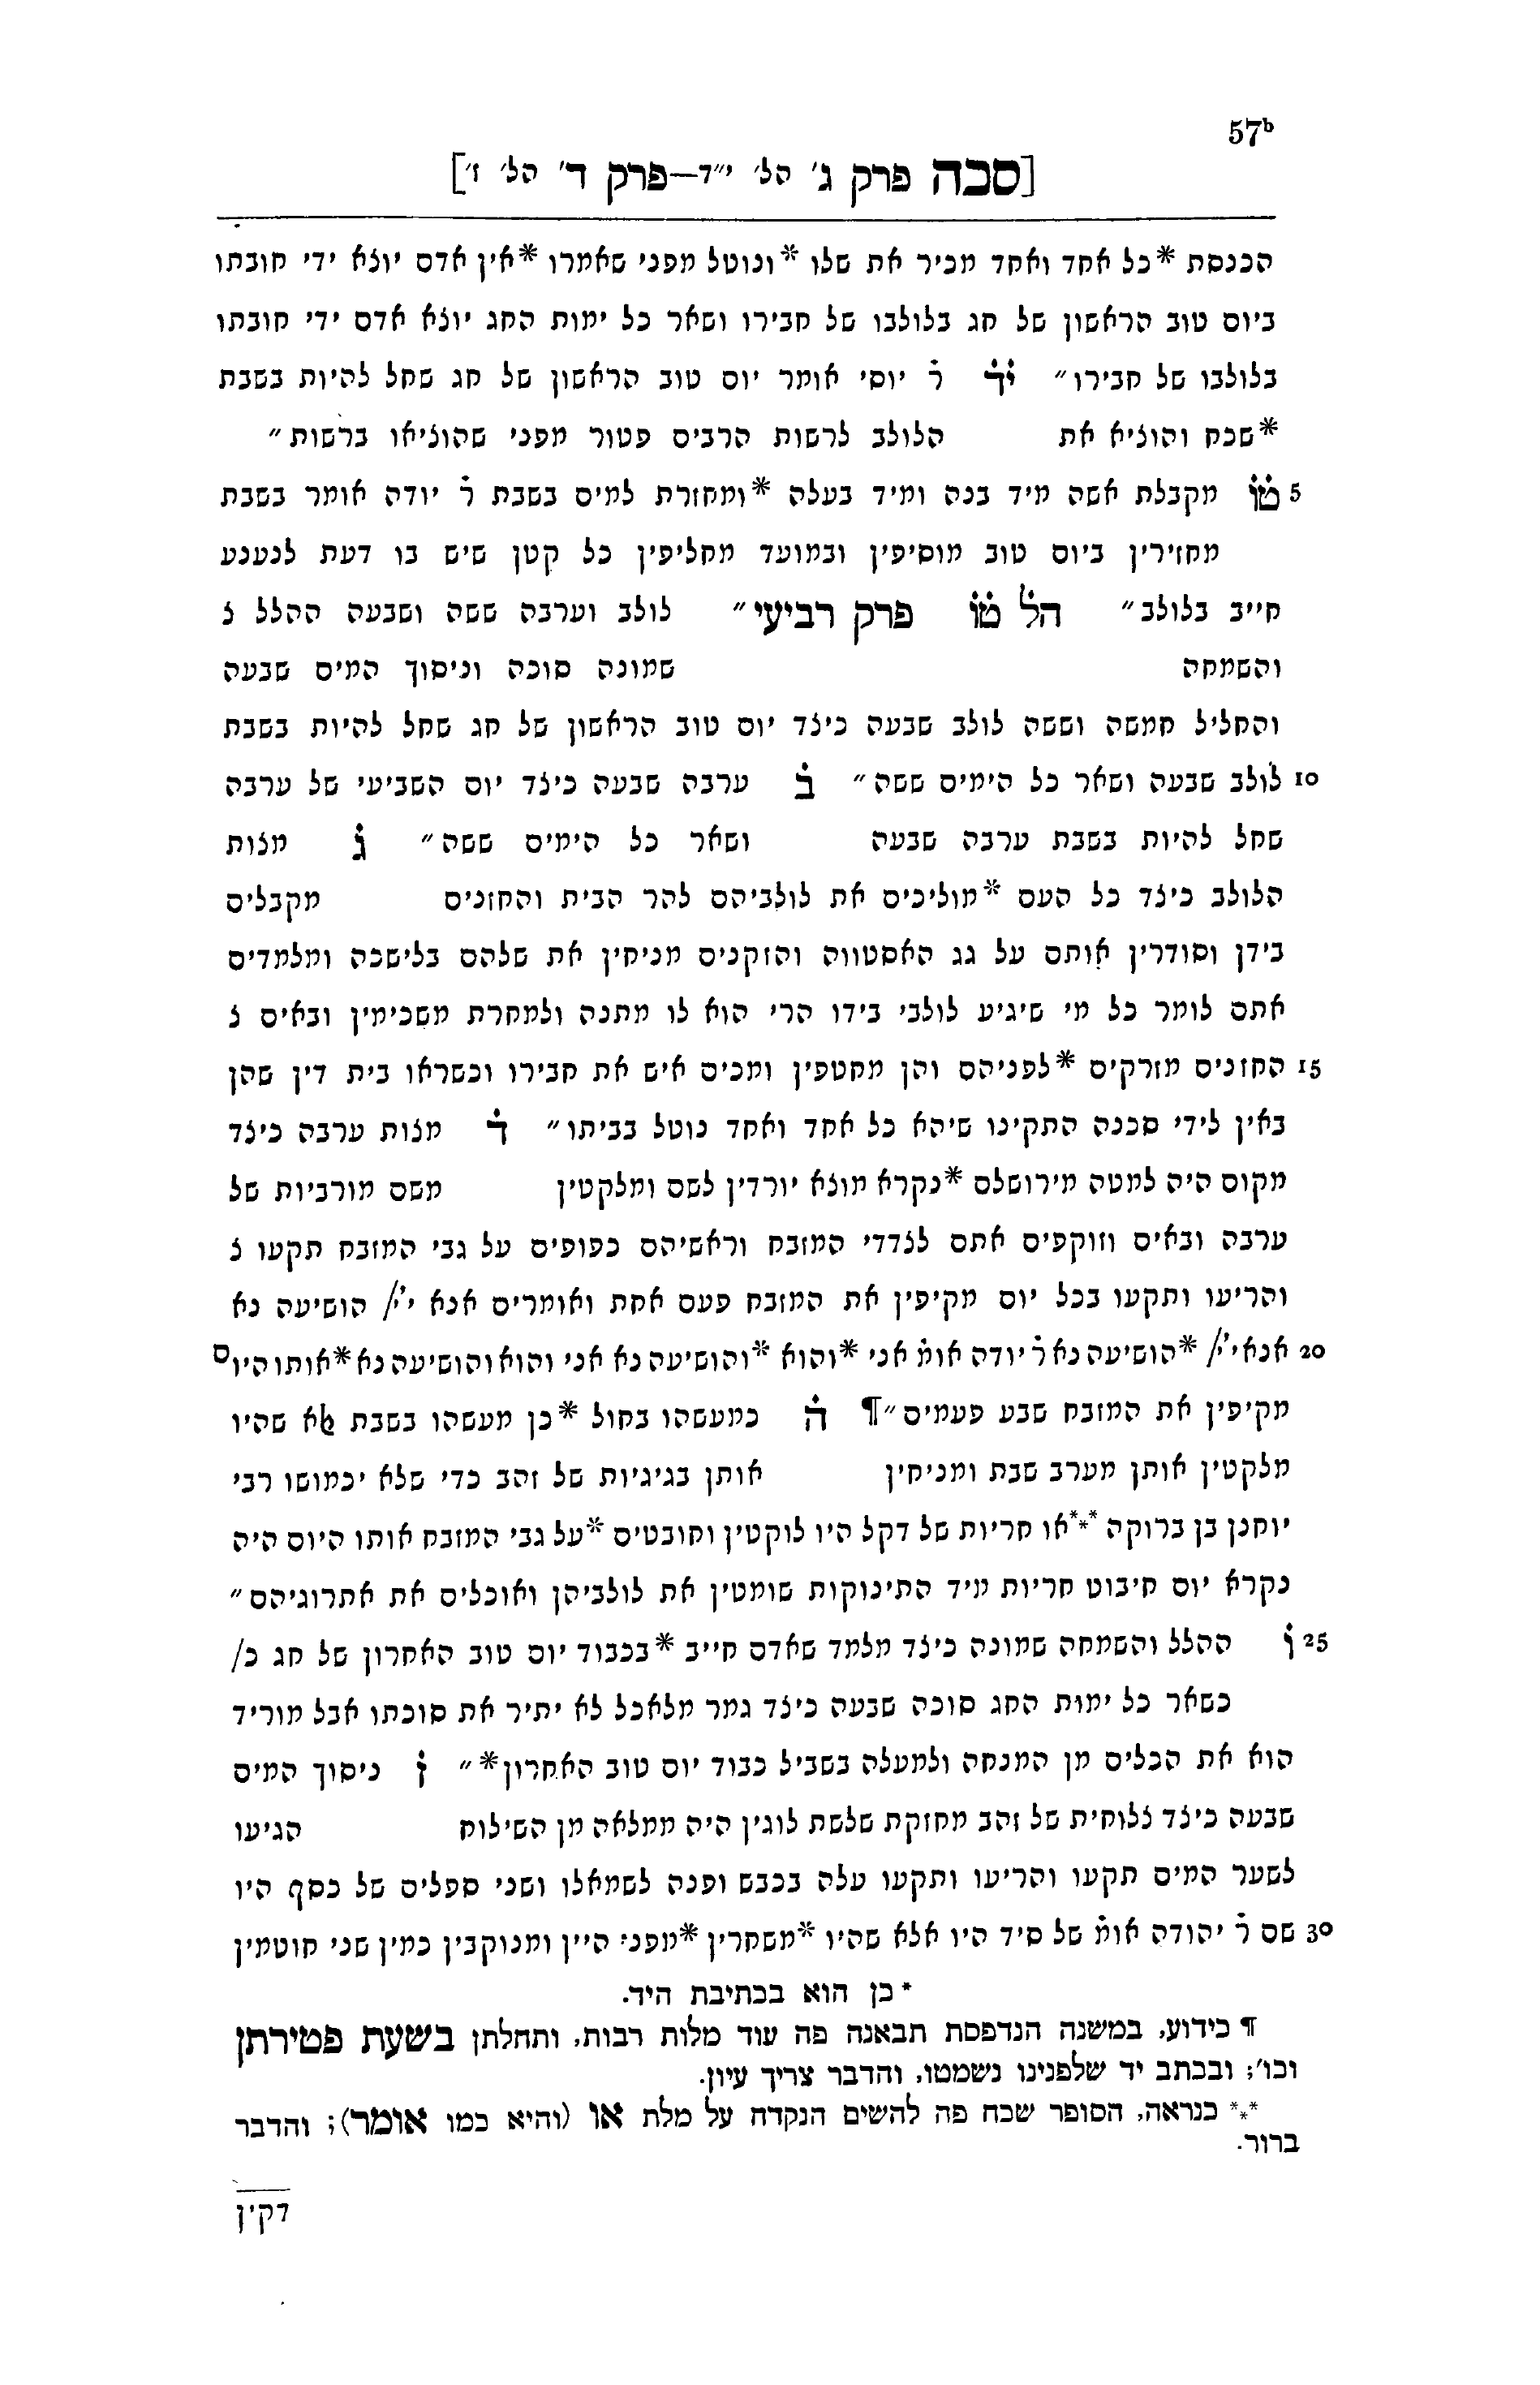 57ᵇ
[סכה פרק ג׳ הל׳ י״ד—פרק ד׳ הל׳ ז׳]
הכנסת *כל אחד ואחד מכיר את שלו *ונוטל מפני שאמרו *אין אדם יוצא ידי חובתו
ביום טוב הראשון של חג בלולבו של חבירו ושאר כל ימות החג יוצא אדם ידי חובתו
בלולבו של חבירו״ יד ר יוסי אומר יום טוב הראשון של חג שחל להיות בשבת
*שכח והוציא את הלולב לרשות הרבים פטור מפני שהוציאו ברשות״
5 טו מקבלת אשה מיד בנה ומיד בעלה *ומחזרת למים בשבת ר יודה אומר בשבת
מחזירין ביום טוב מוסיפין ובמועד מחליפין כל קטן שיש בו דעת לנענע
חייב בלולב״ הל טו פרק רביעי״ לולב וערבה ששה ושבעה ההלל נ
והשמחה שמונה סוכה וניסוך המים שבעה
והחליל חמשה וששה לולב שבעה כיצד יום טוב הראשון של חג שחל להיות בשבת
10 לולב שבעה ושאר כל הימים ששה״ ב ערבה שבעה כיצד יום השביעי של ערבה
שחל להיות בשבת ערבה שבעה ושאר כל הימים ששה״ ג מצות
הלולב כיצד כל העם *מוליכים את לולביהם להר הבית והחזנים מקבלים
בידן וסודרין אותם על גג האסטווה והזקנים מניחין את שלהם בלישכה ומלמדים
אתם לומר כל מי שיגיע לולבי בידו הרי הוא לו מתנה ולמחרת משכימין ובאים נ
15 החזנים מזרקים *לפניהם והן מחטפין ומכים איש את חבירו וכשראו בית דין שהן
באין לידי סכנה התקינו שיהא כל אחד ואחד נוטל בביתו״ ד מצות ערבה כיצד
מקום היה למטה מירושלם *נקרא מוצא יורדין לשם ומלקטין משם מורביות של
ערבה ובאים וזוקפים אתם לצדדי המזבח וראשיהם כפופים על גבי המזבח תקעו נ
והריעו ותקעו בכל יום מקיפין את המזבח פעם אחת ואומרים אנא י׳י/ הושיעה נא
20 אנא י׳י/ *הושיעה נא ר יודה אומ אני *והוא *והושיעה נא אני והוא והושיעה נא *אותו היום
מקיפין את המזבח שבע פעמים״¶ ה כמעשהו בחול *כן מעשהו בשבת אלא שהיו
מלקטין אותן מערב שבת ומניחין אותן בגיגיות של זהב כדי שלא יכמושו רבי
יוחנן בן ברוקה ***או חריות של דקל היו לוקטין וחובטים *על גבי המזבח אותו היום היה
נקרא יום חיבוט חריות מיד התינוקות שומטין את לולביהן ואוכלים את אתרוגיהם״
25 ו ההלל והשמחה שמונה כיצד מלמד שאדם חייב *בכבוד יום טוב האחרון של חג כ/
כשאר כל ימות החג סוכה שבעה כיצד גמר מלאכל לא יתיר את סוכתו אבל מוריד
הוא את הכלים מן המנחה ולמעלה בשביל כבוד יום טוב האחרון*״ ז ניסוך המים
שבעה כיצד צלוחית של זהב מחזקת שלשת לוגין היה ממלאה מן השילוח הגיעו
לשער המים תקעו והריעו ותקעו עלה בכבש ופנה לשמאלו ושני ספלים של כסף היו
30 שם ר יהודה אומ של סיד היו אלא שהיו *משחרין *מפני היין ומנוקבין כמין שני חוטמין
* כן הוא בכתיבת היד.
¶ כידוע, במשנה הנדפסת תבאנה פה עוד מלות רבות, ותחלתן בשעת פטירתן
וכו׳; ובכתב יד שלפנינו נשמטו, והדבר צריך עיון.
*** כנראה, הסופר שכח פה להשים הנקדה על מלת או (והיא כמו אומר); והדבר
ברור.
דקין